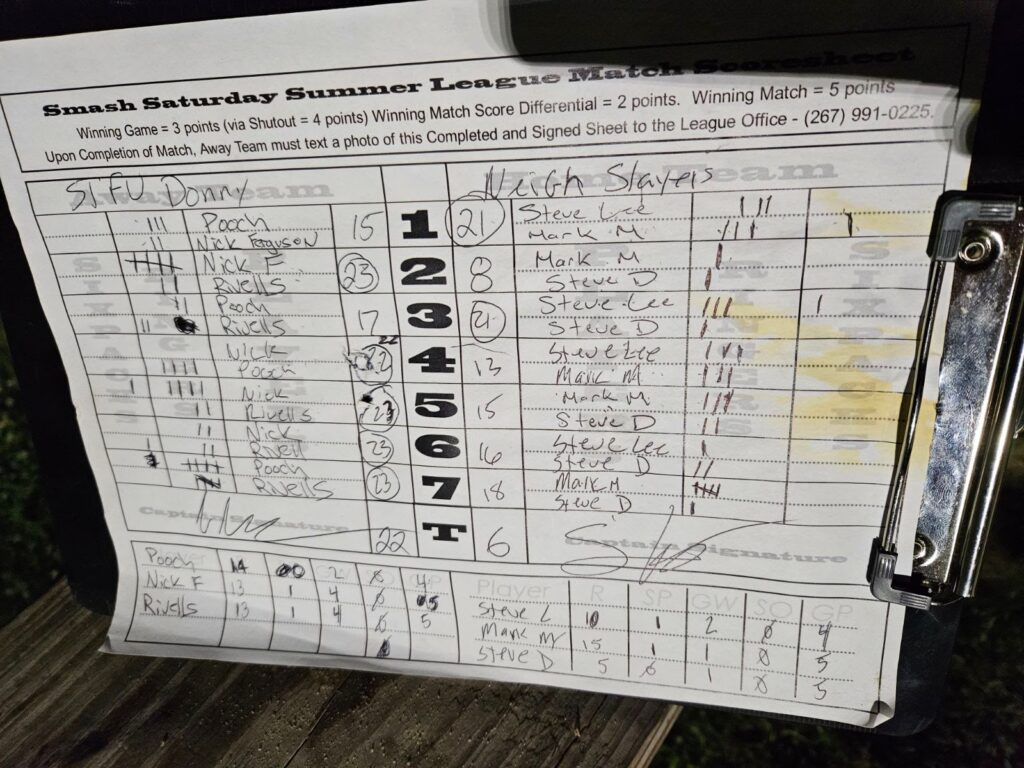 Smash Saturday Summer League Match Scoresheet
Winning Game = 3 points (via Shutout = 4 points) Winning Match Score Differential = 2 points. Winning Match = 5 points
Upon Completion of Match, Away Team must text a photo of this Completed and Signed Sheet to the League Office - (267) 991-0225.
Donny Neigh Slayers
Pooch 15 1 21 Steve Lee
Nick Ferguson Mark M
Nick F 23 2 8 Mark M
Rivells Steve D
Pooch 17 3 21 Steve Lee
Rivells Steve D
Nick 22 4 13 Steve Lee
Pooch Mark M
Nick 5 15 Mark M
Rivells Steve D
Nick 23 6 16 Steve Lee
Rivell Steve D
Pooch 23 7 18 Mark M
Rivells Steve D
Captain Signature 22 T 6 Captain Signature
Player R SP GW SO GP
Pooch 14 2 0 4
Nick F 13 1 4 0 5
Rivells 13 1 4 0 5
Steve L 10 1 2 0 4
Mark M 15 1 1 0 5
Steve D 5 0 1 0 5